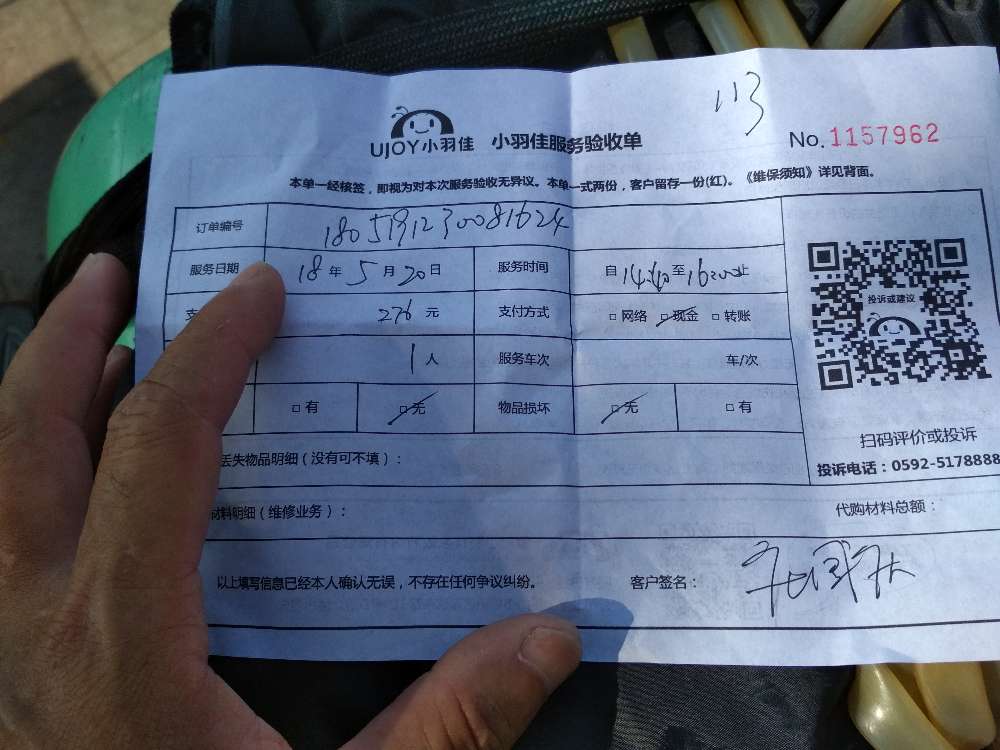 113
UJOY小羽佳 小羽佳服务验收单 No.1157962
本单一经核签，即视为对本次服务验收无异议。本单一式两份，客户留存一份(红)。《维保须知》详见背面。
订单编号 1805191230081624
服务日期 18年5月20日 服务时间 自14:40至16:00止
支 276元 支付方式 □网络 □现金 □转账
1人 服务车次 车/次
□有 □无 物品损坏 □无 □有
投诉或建议
扫码评价或投诉
投诉电话：0592-5178888
丢失物品明细（没有可不填）：
材料明细（维修业务）： 代购材料总额：
以上填写信息已经本人确认无误，不存在任何争议纠纷。 客户签名：